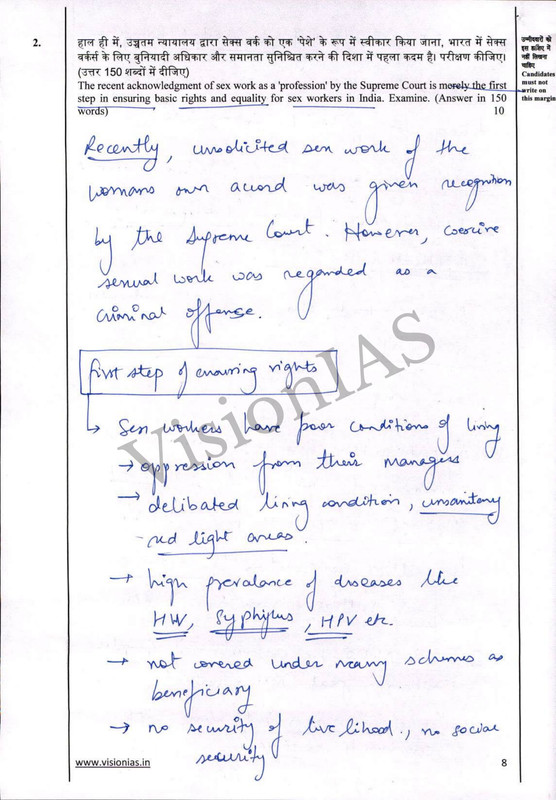 2.
हाल ही में, उच्चतम न्यायालय द्वारा सेक्स वर्क को एक 'पेशे' के रूप में स्वीकार किया जाना, भारत में सेक्स
वर्कर्स के लिए बुनियादी अधिकार और समानता सुनिश्चित करने की दिशा में पहला कदम है। परीक्षण कीजिए।
(उत्तर 150 शब्दों में दीजिए)
The recent acknowledgment of sex work as a 'profession' by the Supreme Court is merely the first
step in ensuring basic rights and equality for sex workers in India. Examine. (Answer in 150
words) 10
उम्मीदवारों को
इस हाशिए में
नहीं लिखना
चाहिए
Candidates
must not
write on
this margin
Recently, unsolicited sex work of the
womans own accord was given recognition
by the Supreme Court. However, coercive
sexual work was regarded as a
criminal offense.
first step of ensuring rights
Sex workers have poor conditions of living
→ oppression from their managers
→ delibated living condition, unsanitary
red light areas.
→ high prevalance of diseases like
HIV, Syphilus, HPV etc.
→ not covered under many schemes as
beneficiary
→ no security of livelihood, no social
security
VisionIAS
www.visionias.in
8